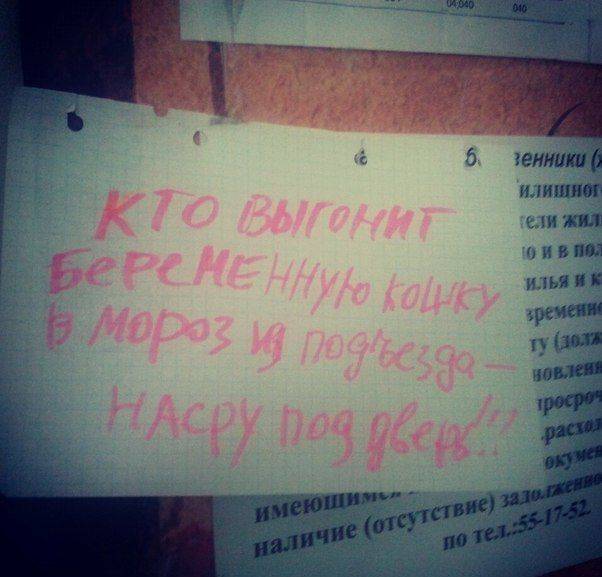 04,040 040
КТО ВЫГОНИТ
БЕРЕМЕННУЮ КОШКУ
В МОРОЗ ИЗ ПОДЪЕЗДА —
НАСРУ ПОД ДВЕРЬ!!!
б.
венники (
илищног
ели жил
о и в по
илья и к
временно
ту (долж
новлени
просроч
расход
окумен
имеющимся
наличие (отсутствие) задолженно
по тел.:55-17-52.